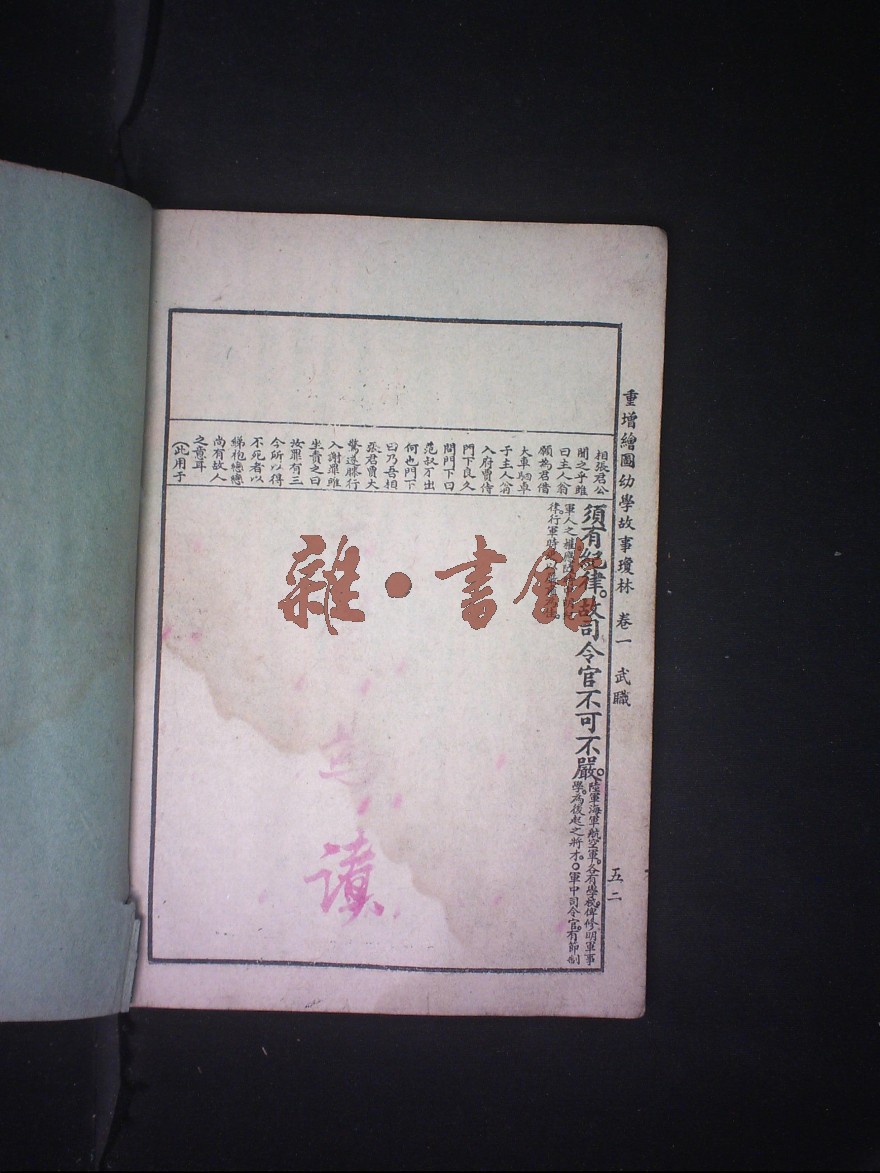 重增繪圖幼學故事瓊林 卷一 武職 五二
相張君公
聞之乎雎
曰主人翁
願為君借
大車駟車
子主人翁
入府賈侍
門下良久
問門下曰
范叔不出
何也門下
曰乃吾相
張君賈大
驚遂膝行
入謝罪雎
坐責之曰
汝罪有三
今所以得
不死者以
綈袍戀戀
尚有故人
之意耳
(此用于
須有紀律。故司令官不可不嚴。
陸軍海軍航空軍。各有學校。俾修明軍事
學。為後起之將才。○軍中司令官。有節制
軍人之權
律。行軍時
雜·書館
讀